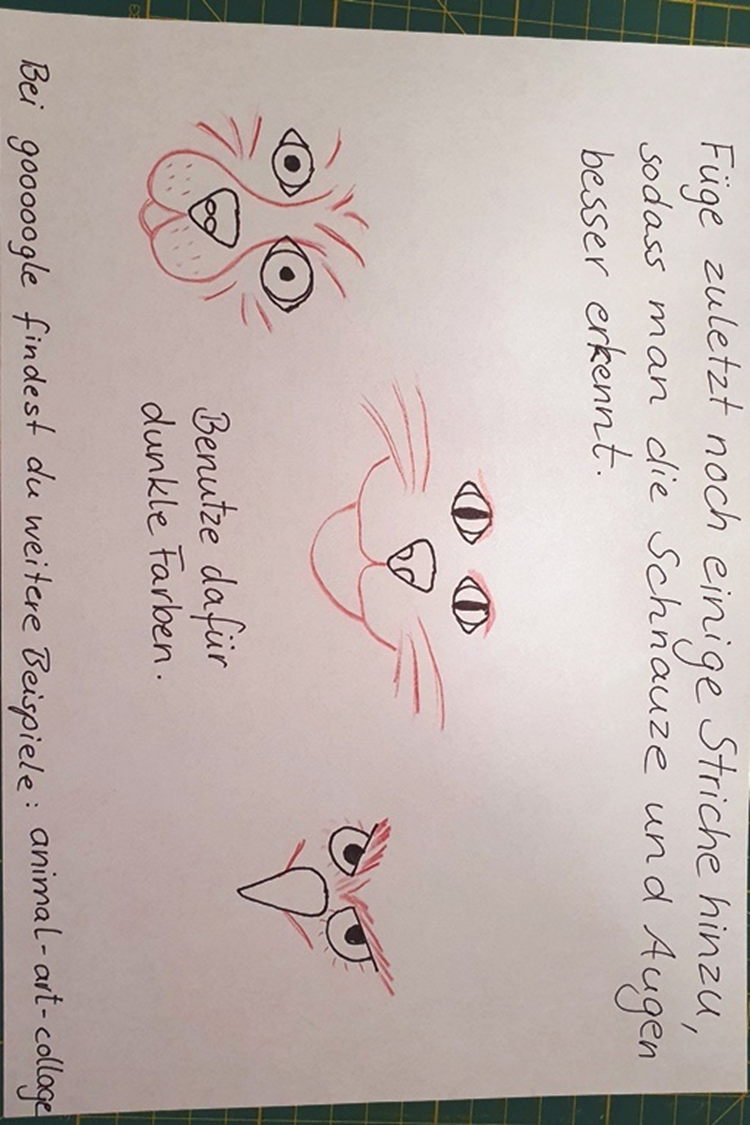 Füge zuletzt noch einige Striche hinzu,
sodass man die Schnauze und Augen
besser erkennt.
Benutze dafür
dunkle Farben.
Bei gooooogle findest du weitere Beispiele: animal-art-collage